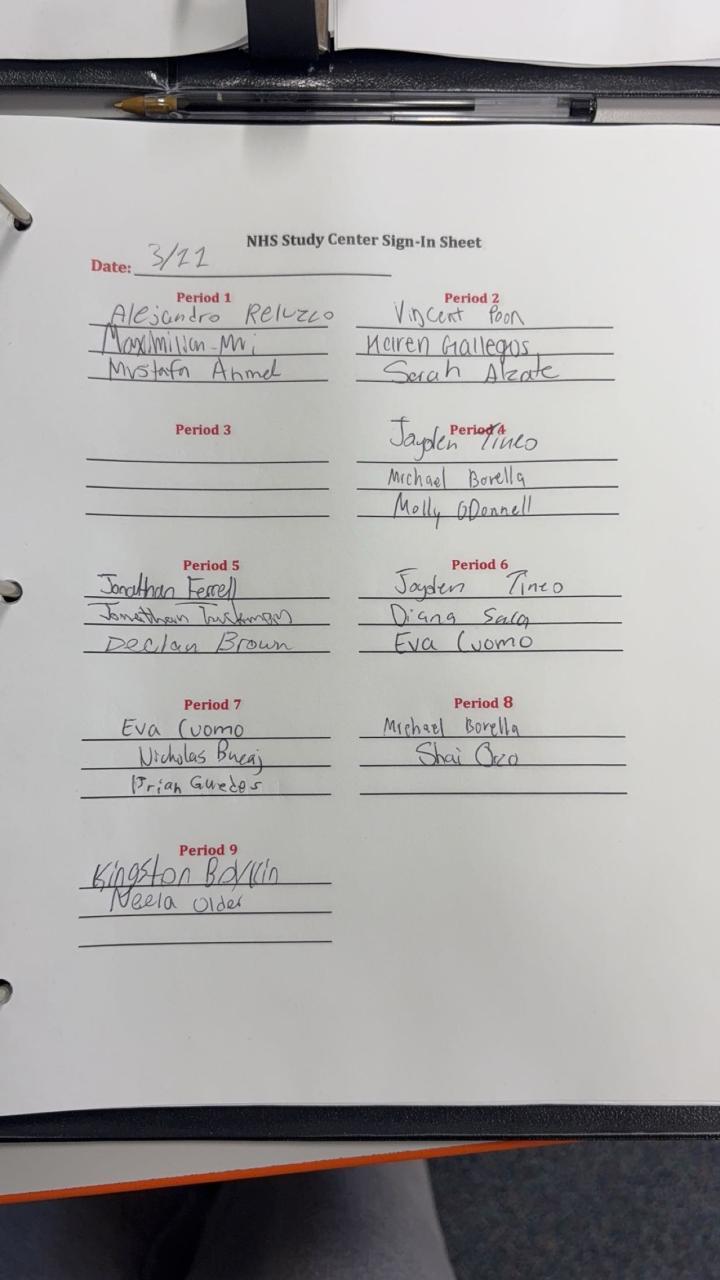 NHS Study Center Sign-In Sheet
Date: 3/11
Period 1
Alejandro Reluzco
Maximilian
Mustafa Ahmed
Period 2
Vincent Poon
Keiren Gallegos
Sarah Alzate
Period 3
Period 4
Jayden Tineo
Michael Borella
Molly ODonnell
Period 5
Jonathan Ferrell
Jonathan
Declan Brown
Period 6
Jayden Tineo
Diana Salca
Eva Cuomo
Period 7
Eva Cuomo
Nicholas Bucaj
Brian Guedes
Period 8
Michael Borella
Shai
Period 9
Kingston Boykin
Neela Older